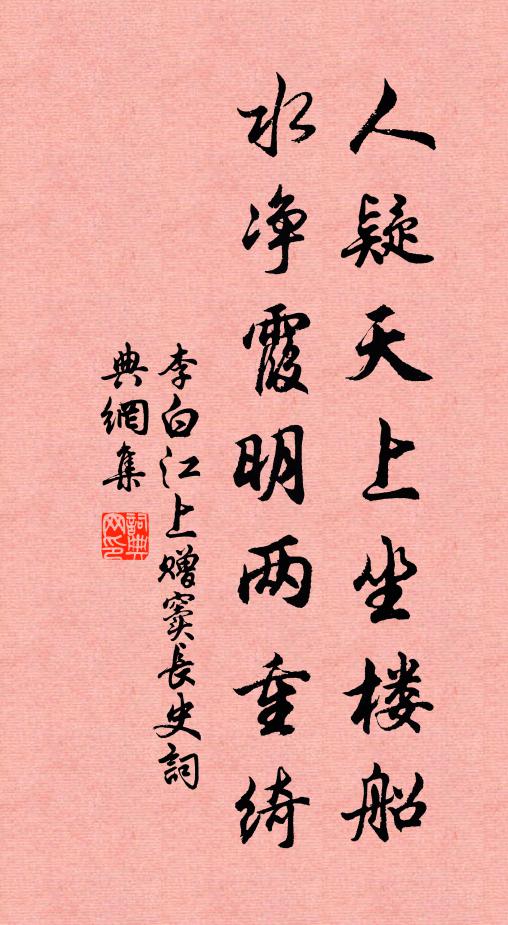 人疑天上坐楼船
水净霞明两重绮
李白江上赠窦長史詞
典網集
詞典
网印